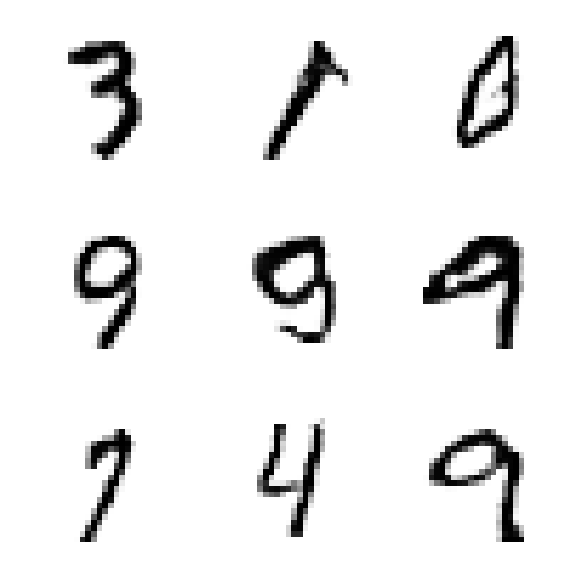 3 1 0
9 9 9
7 4 9